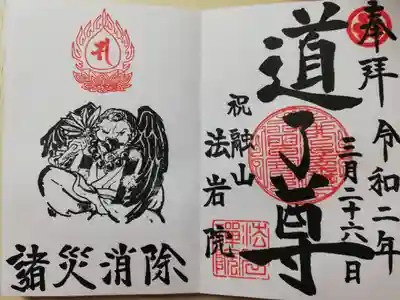 奉拝 令和二年
三月二十六日
道了尊
祝融山
法岩院
諸災消除